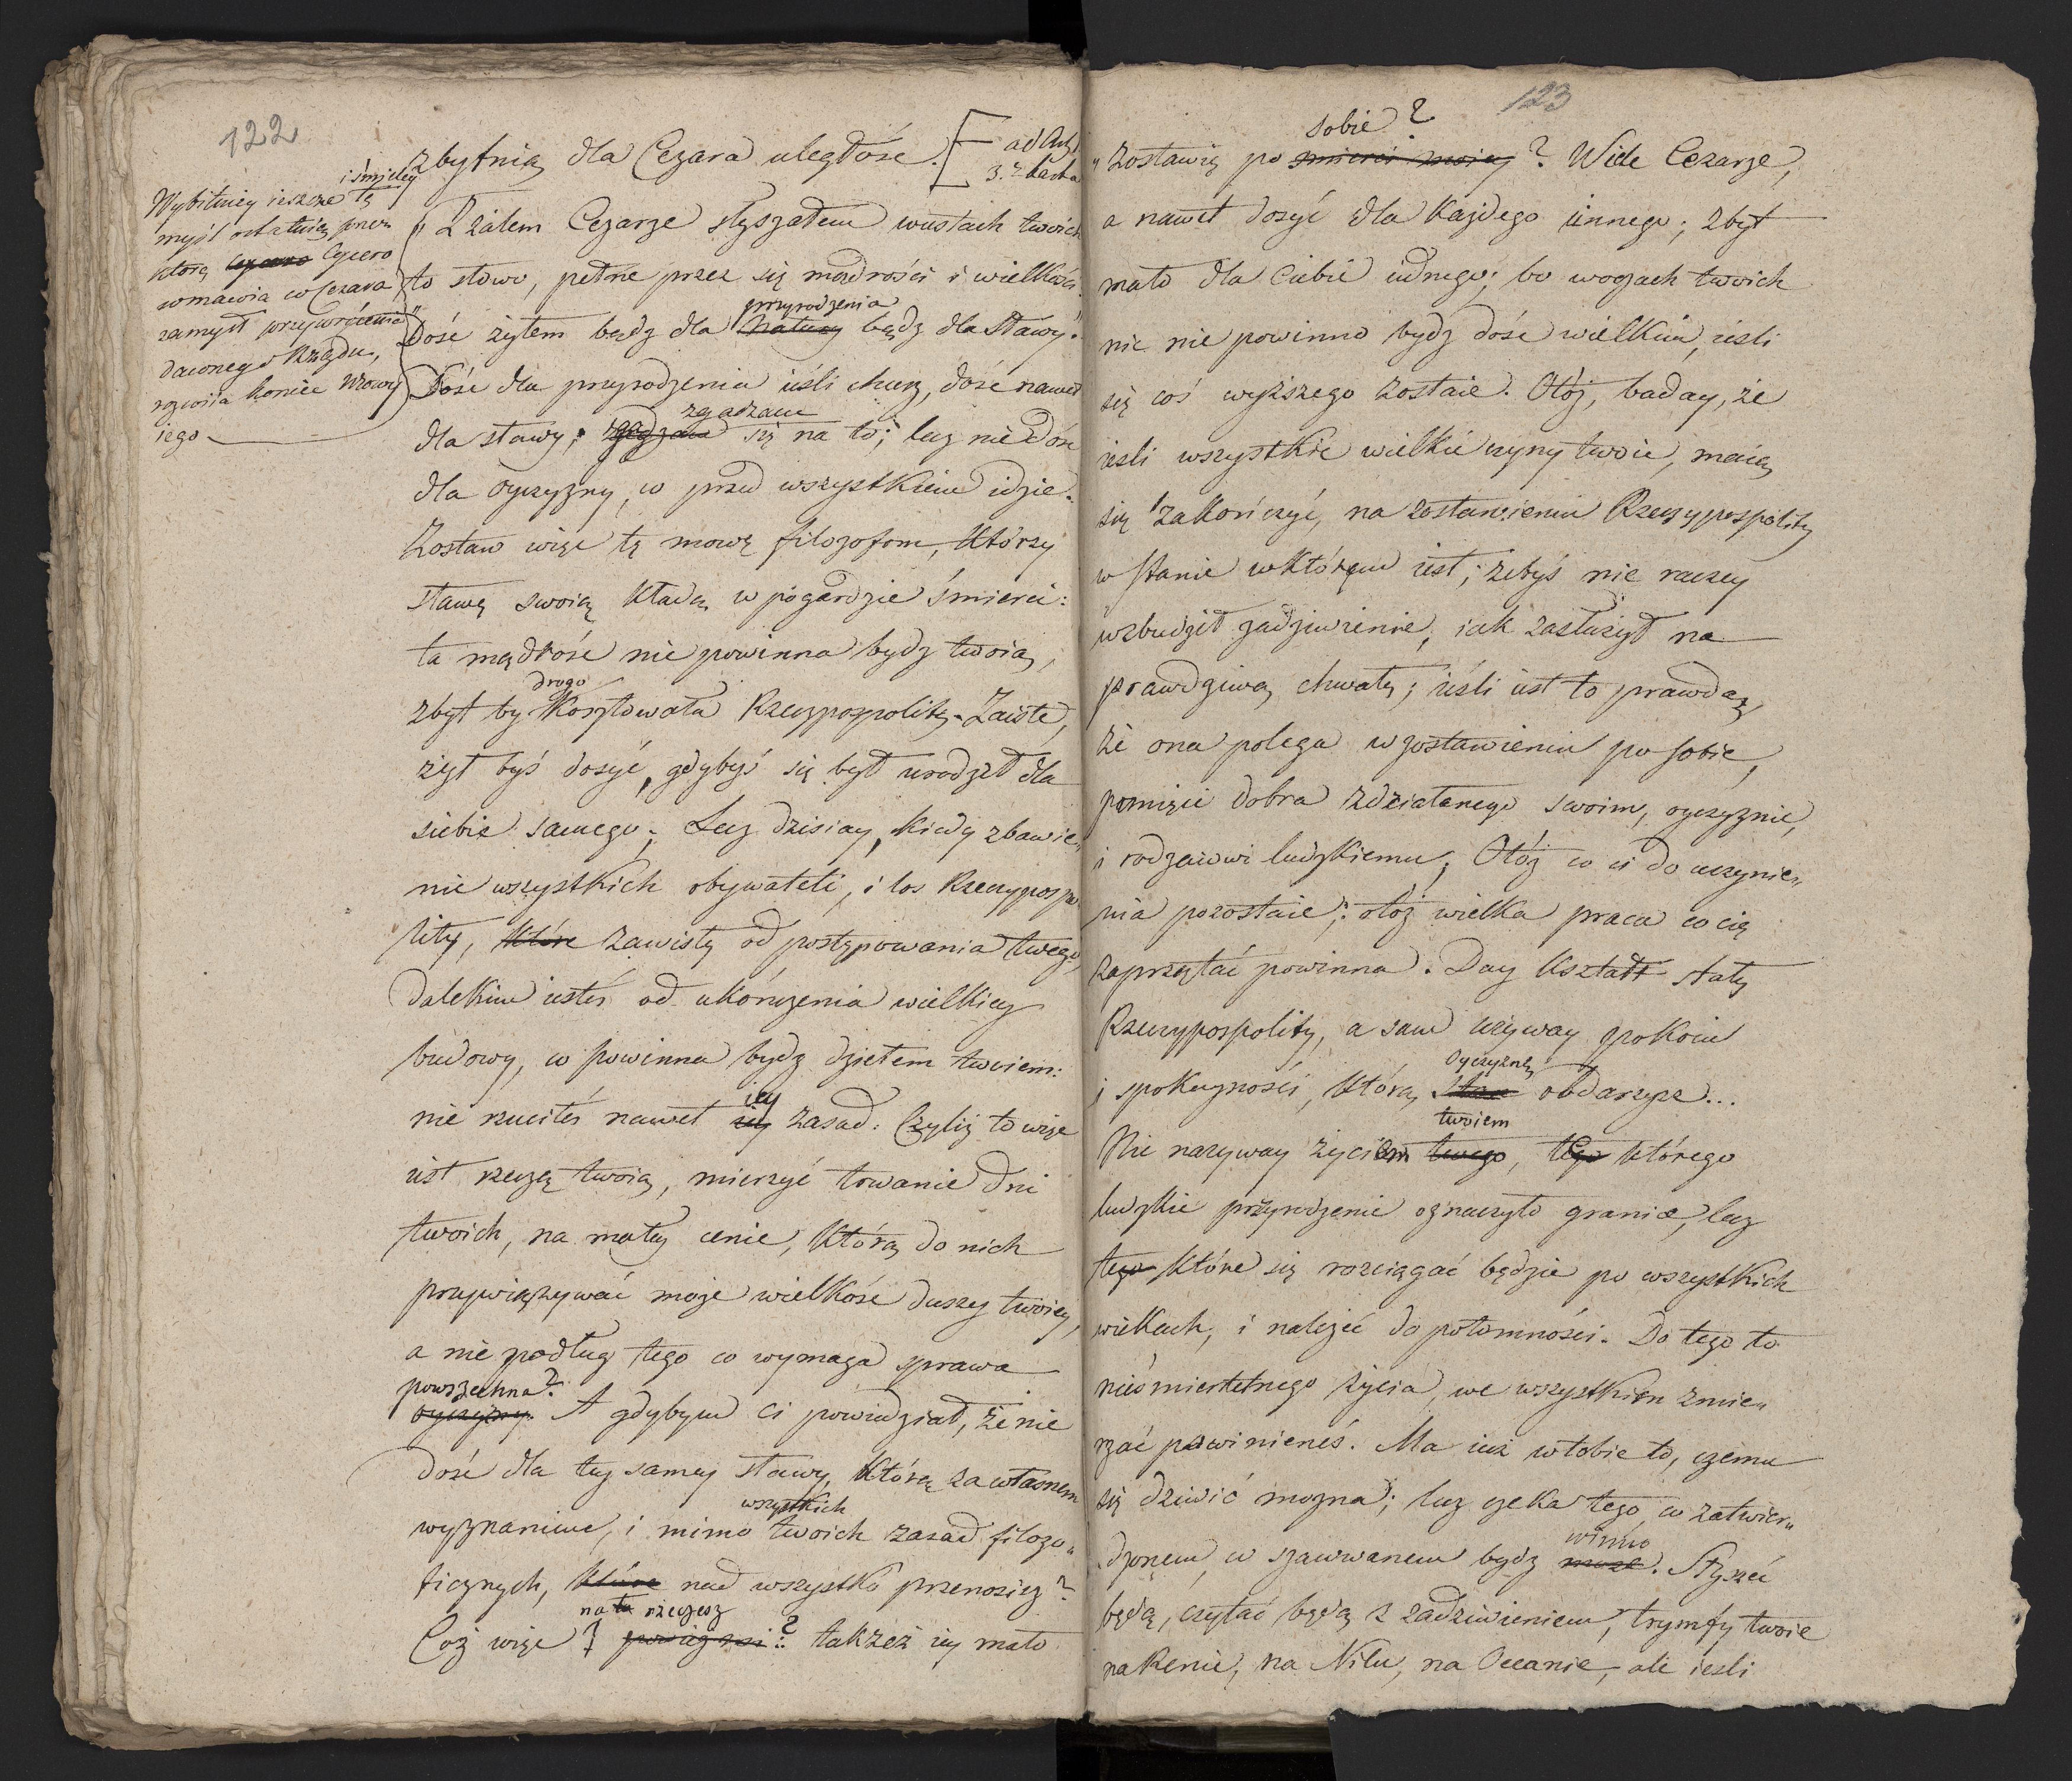 122
zbytnią dla Cezara uległość. [ ad
3.
Wybitniey ieszcze i śmieley tę
myśl ostatnią przez
którą Cycero Cycero
wmawia w Cezara
zamysł przywrócenia
dawnego Rządu,
rozwiia koniec Mowy
iego
„Z żalem Cezarze słyszałem w ustach twoich
to słowo, pełne przez się mądrości i wielkości.
„Dość żyłem bądz dla natury przyrodzenia bądz dla sławy."
Dość dla przyrodzenia ieśli chcesz, dość nawet
dla sławy; zgadzam się na to; lecz nie dość
dla oyczyzny, co przed wszystkiem idzie.
Zostaw więc tę mowę filozofom, którzy
sławę swoią kładą w pogardzie śmierci:
ta mądrość nie powinna bydz twoią,
zbyt by drogo kosztowała Rzeczypospolitę. Zaiste,
żył byś dosyć, gdybyś się był urodził dla
siebie samego; Lecz dzisiay, kiedy zbawie„
nie wszystkich obywateli, i los Rzeczypospo„
litey, które zawisły od postępowania twego,
dalekim iesteś od ukończenia wielkiey
budowy, co powinna bydz dziełem twoiem:
nie rzuciłeś nawet iey zasad. Czyliż to więc
iest rzeczą twoią, mierzyć trwanie dni
twoich, na małey cenie, którą do nich
przywiązywać może wielkość duszy twoiey,
a nie podług tego co wymaga sprawa
powszechna? oyczyzny. A gdybym ci powiedział, że nie
dość dla tey samey sławy, którą za własnem
wyznaniem, i mimo wszystkich twoich zasad filozo„
ficznych, które nad wszystko przenosisz?
Coż więc na to rzeczesz? takżeż iey mało
123
„zostawię po śmierci moiey sobie? Wiele Cezarze,
a nawet dosyć dla każdego innego; zbyt
mało dla ciebie iednego; bo w oczach twoich
nic nie powinno bydz dość wielkim, ieśli
się coś wyższego zostaie. Otóż, baday, że
ieśli wszystkie wielkie czyny twoie, maią
się zakończyć, na zostawieniu Rzeczypospolitey
w stanie w którym iest; żebyś nie raczey
wzbudził zadziwienie, iak zasłużył na
prawdziwą chwałę; ieśli iest to prawdą,
że ona polega w zostawieniu po sobie,
pomięci dobra zdziałanego swoim, oyczyznie,
i rodzaiowi ludzkiemu; Otóż co ci do uczynie„
nia pozostaie; otoż wielka praca co cię
zaprzątać powinna. Day kształt stały
Rzeczypospolitey, a sam używay pokoiu
i spokoyności, którą Oyczyznę obdarzysz...
Nie nazyway życiem twego twoiem, tego którego
ludzkie przyrodzenie oznaczyło granice, lecz
tego które się rozciągać będzie po wszystkich
wiekach, i należeć do potomności. Do tego to
nieśmiertelnego życia, we wszystkiem zmie„
rzać powinieneś. Ma iuż w tobie to, czemu
się dziwić można; lecz czeka tego, co zatwier„
dzonem, co szanowanem bydz może winno. Słyszeć
będą, czytać będą z zadziwieniem, tryumfy twoie
na Renie, na Nilu, na Oceanie, ale ieśli